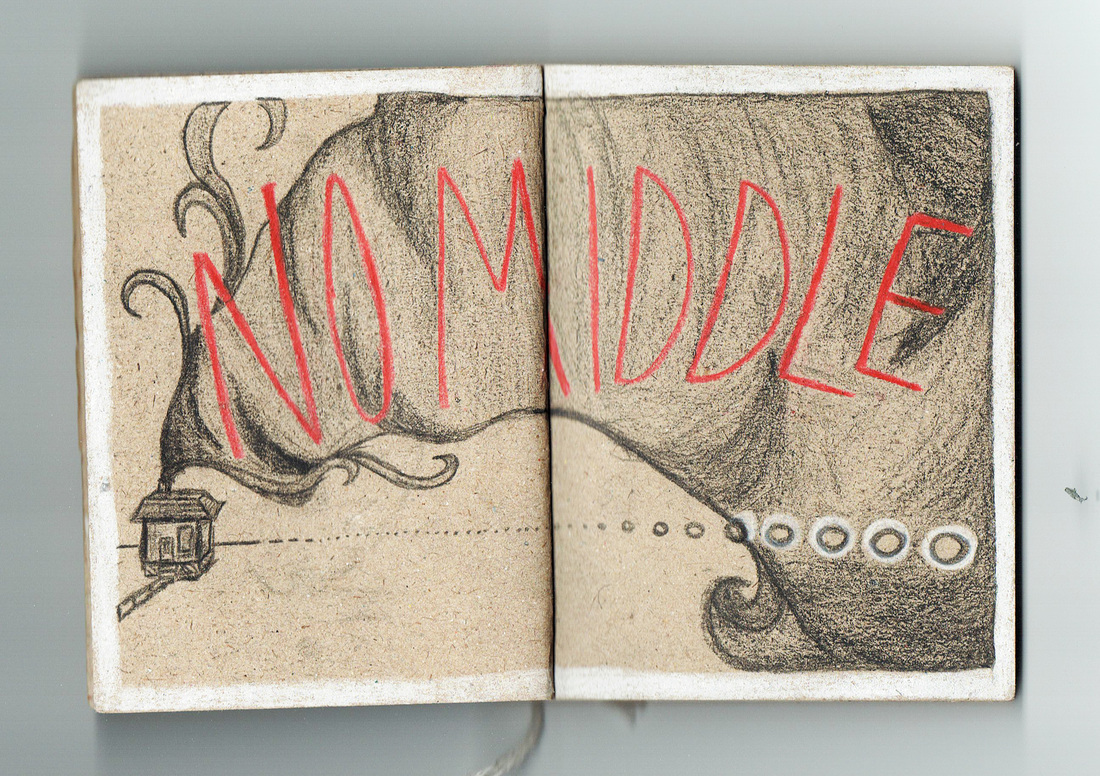 NO MIDDLE